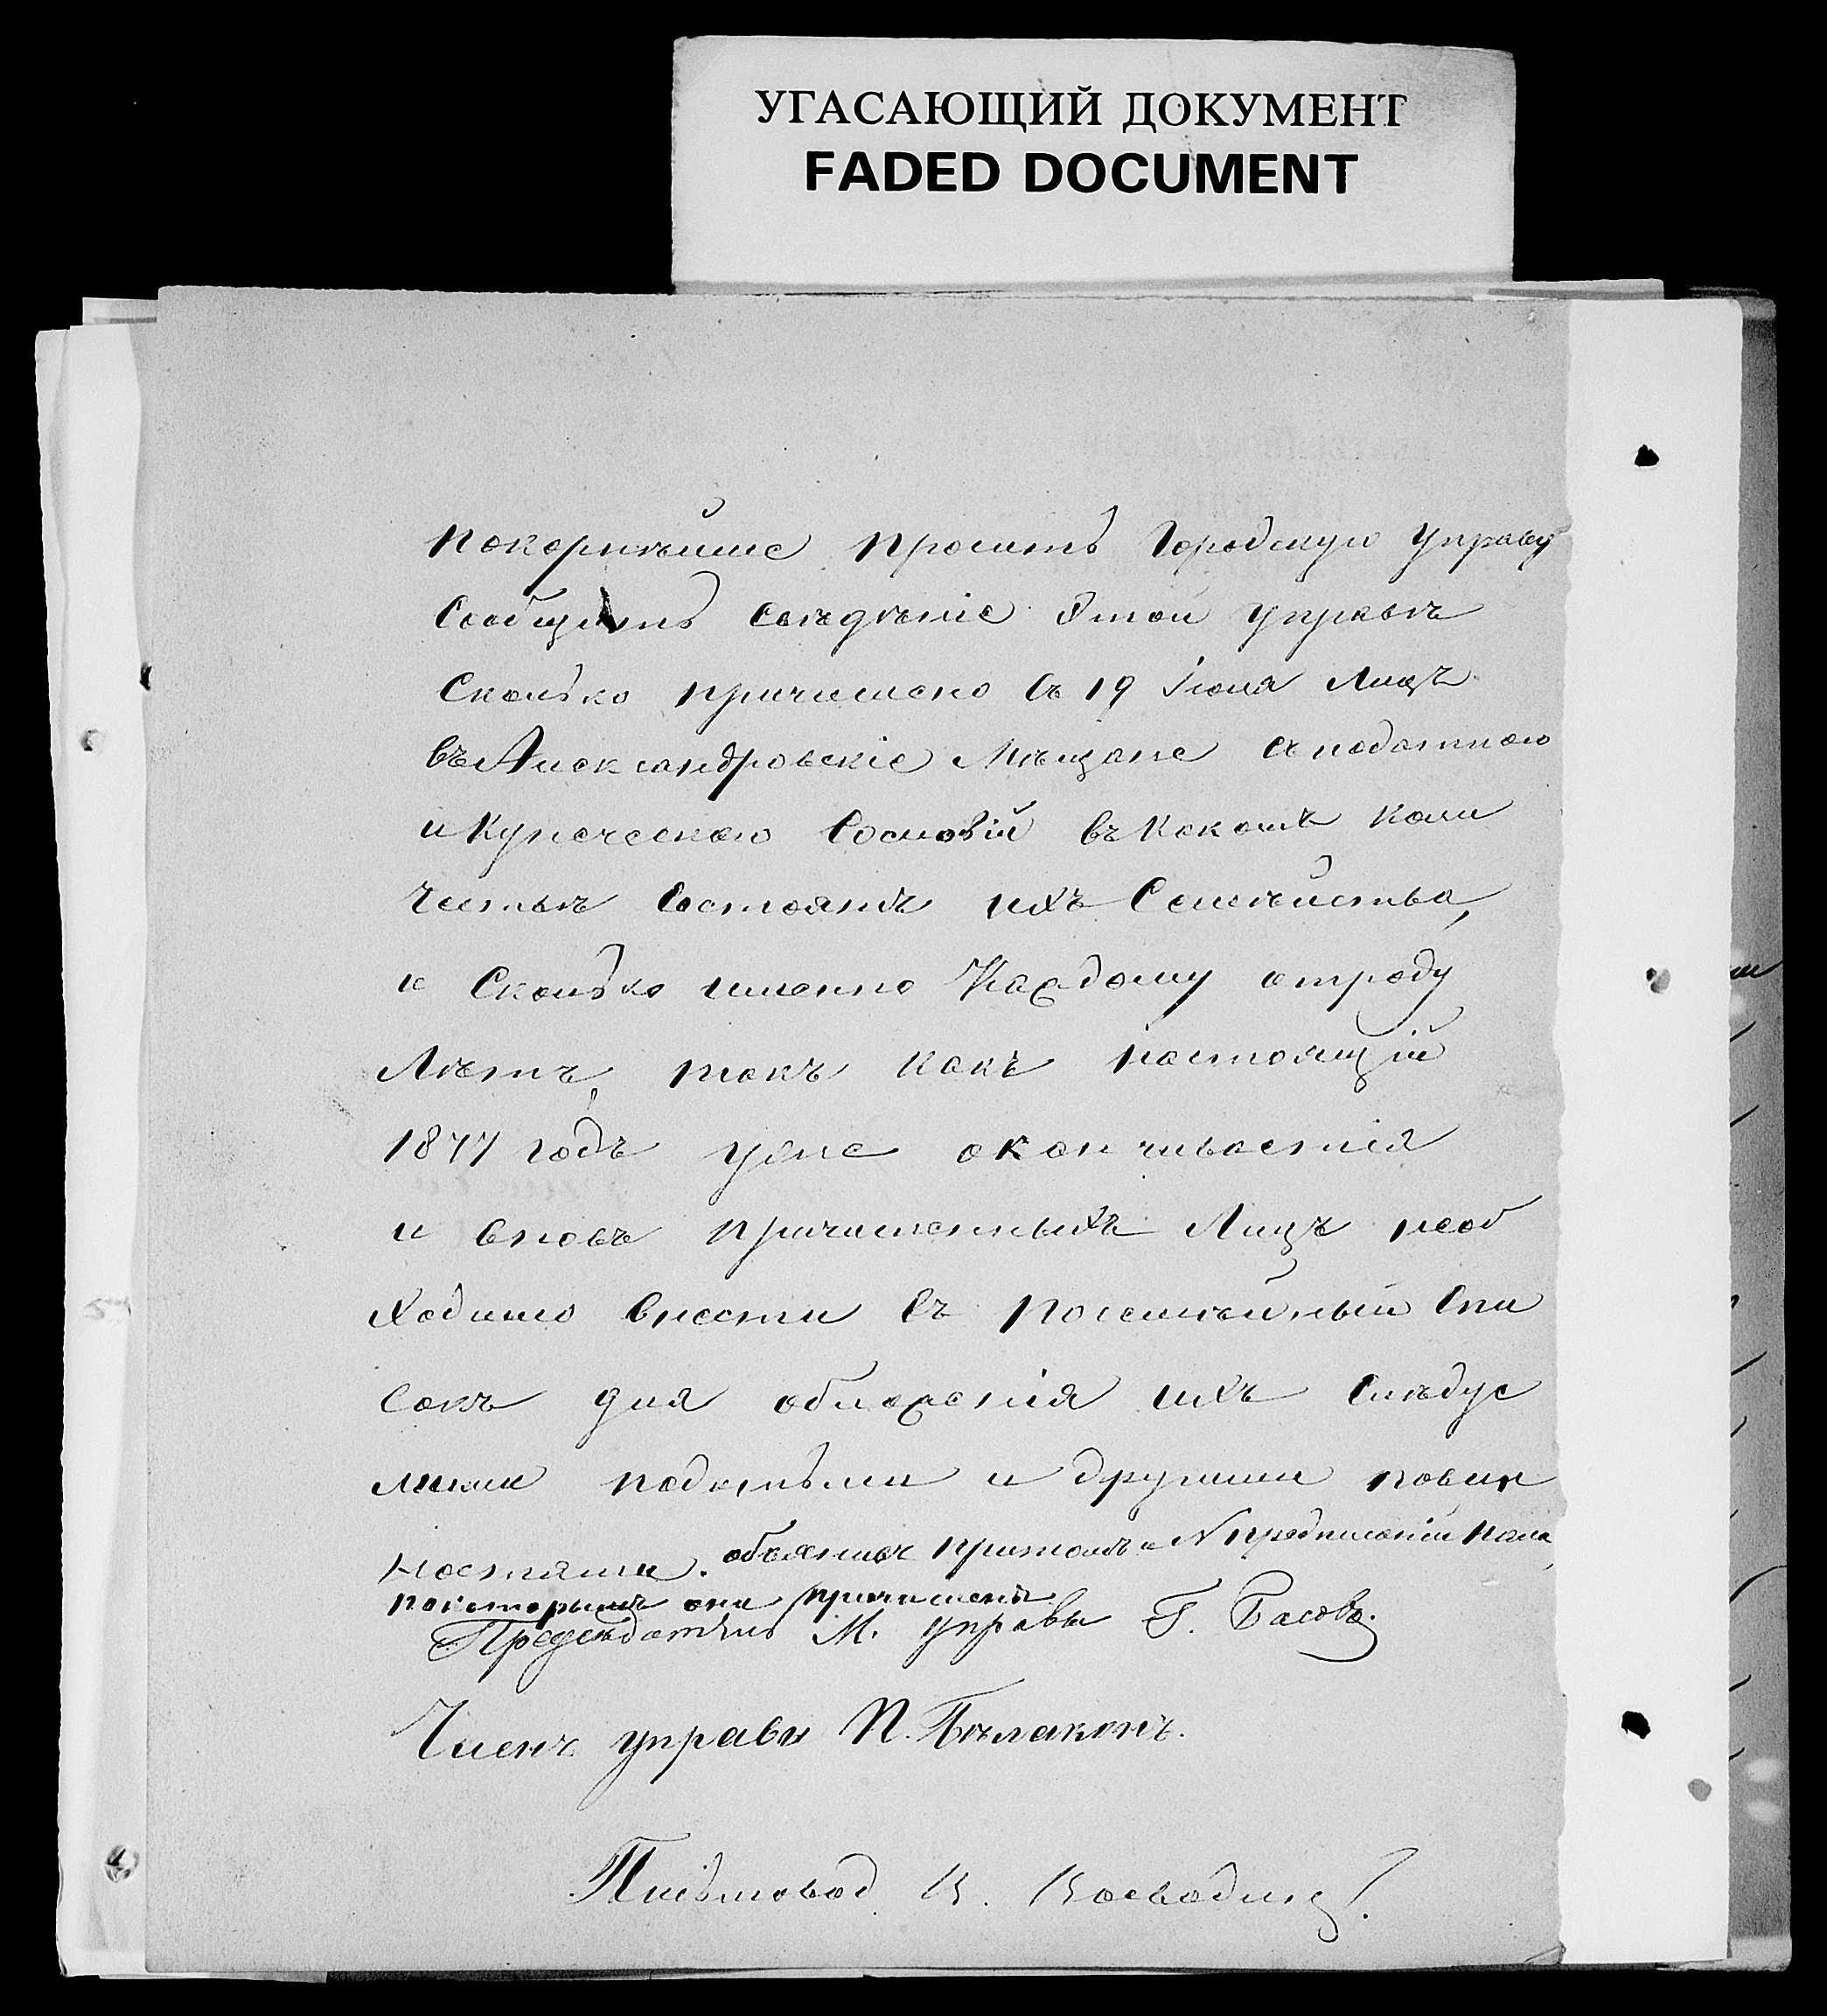 УГАСАЮЩИЙ ДОКУМЕНТ
FADED DOCUMENT
Покорнѣйше просить Городскую Управу
Сообщить Свѣдѣніе Этой управѣ
Сколько причислено Съ 19 Іюня Лицъ
въ Александровскіе Мѣщане съ податного
и Купеческого Сословій въ Какомъ коли
чествѣ Состоятъ ихъ Семѣйства,
и Сколько именно Каждому отроду
Лѣтъ, такъ какъ настоящій
1877 годъ уже оканчивается
и вновь причисленныхъ Лицъ необ
ходимо внести въ Посемѣйный Спи
сокъ для обложенія ихъ Слѣдуе
мыми податьми и другими повин
ностями. обьяснивъ притомъ и № предписаній Пала
покоторымъ они причислены
Предсѣдатель М. управы Г. Басовъ.
Членъ управы П. Бѣлаконь.
Письмовод. В. Воеводинъ.